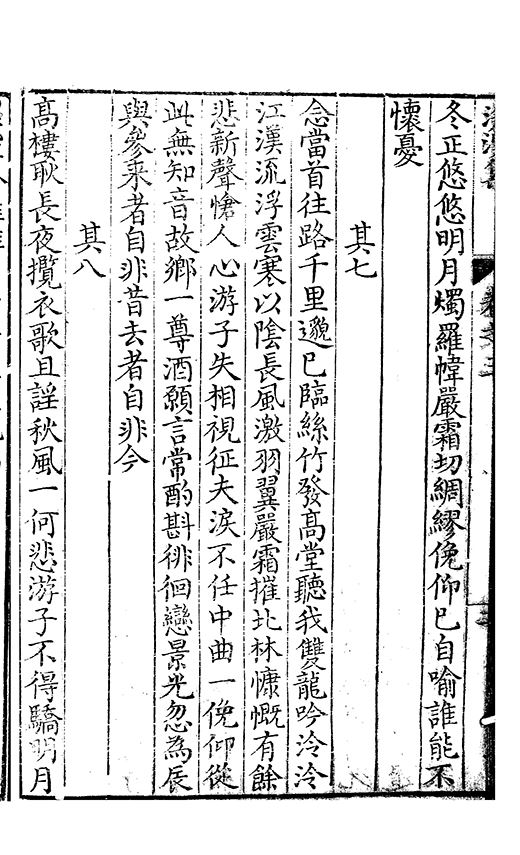 冬正悠悠明月燭羅幃嚴霜切綢繆俛仰已自喻誰能不
懷憂
其七
念當首往路千里邈已臨絲竹發高堂聽我雙龍吟泠泠
江漢流浮雲寒以陰長風激羽翼嚴霜摧北林慷慨有餘
悲新聲愴人心游子失相視征夫淚不任中曲一俛仰從
此無知音故鄉一尊酒願言常酌斟徘徊戀景光忽為辰
與參来者自非昔去者自非今
其八
高樓耿長夜攬衣歌且謡秋風一何悲游子不得驕明月